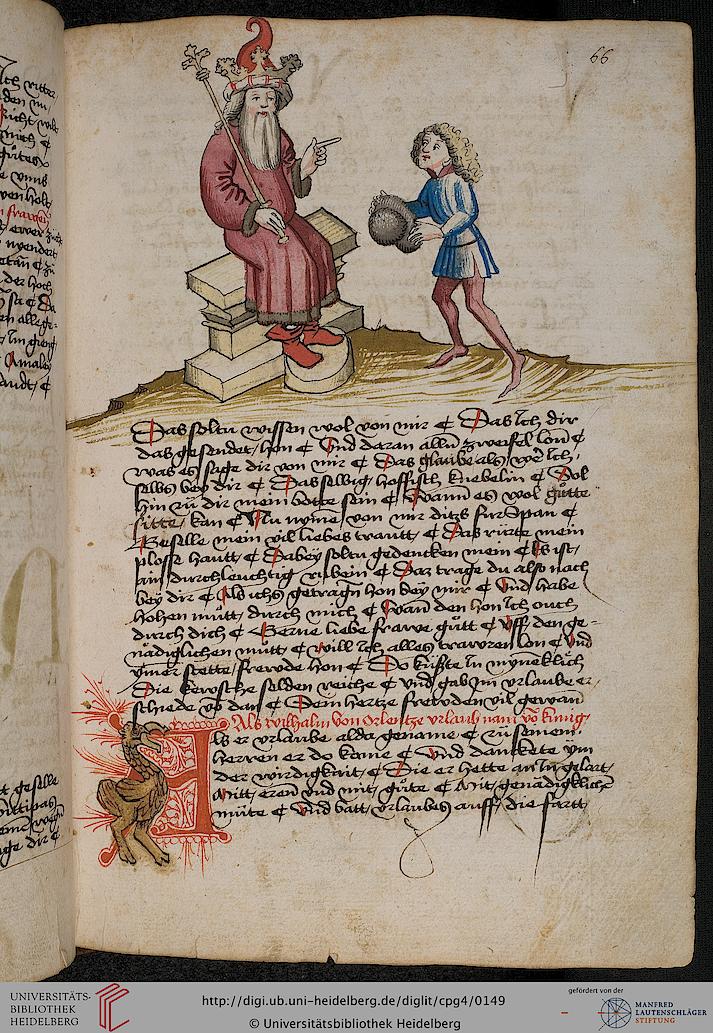 66
Das soltu wissen wol von mir ¢ Das Ich dir
das gesendet hon ¢ Vnd daran alln zweifel lon ¢
was es sage dir von mir ¢ Das glaube als wer Ich
selbs bey dir ¢ Das selbig hoffisch knebelin ¢ Sol
hin zu dir mein botte sein ¢ Wann es wol gutte
sitte kan ¢ Nu nyme von mir ditzs fürspan ¢
Geselle mein vil liebes trautt ¢ Das rürte mein
plosse hautt ¢ Dabey soltu gedencken mein ¢ Es ist
ain durchleuchtig rubein ¢ Daz trage du also nach
bey dir ¢ Als ichs getragn hon bey mir ¢ Vnd habe
hohen mutt durch mich ¢ Wan den hon Ich ouch
durch dich ¢ Gerne liebe frawe gutt ¢ Vff den ge-
nädiglichen mutt ¢ will Ich alles trawren lon ¢ Vnd
ymer stette frewde hon ¢ Do kußte In myneklich
Die kewsche selden reiche ¢ Vnd gab Im vrlaube er
schiede vo dan ¢ Sein hertze frewden vil gewan
Als wilhalm von Orlentze vrlaub nam vo kunig
Als er vrlaube alda gename ¢ zu seinem
herren er do kame ¢ Vnd danckete ym
der wirdigkait ¢ Die er hette an In gelart
Mitt eren vnd mit gute ¢ Mit genädiglicher
mute ¢ Vnd batt vrlaubes auff die fartt
UNIVERSITÄTS-
BIBLIOTHEK
HEIDELBERG
http://digi.ub.uni-heidelberg.de/diglit/cpg4/0149
© Universitätsbibliothek Heidelberg
gefördert von der
MANFRED
LAUTENSCHLÄGER
STIFTUNG